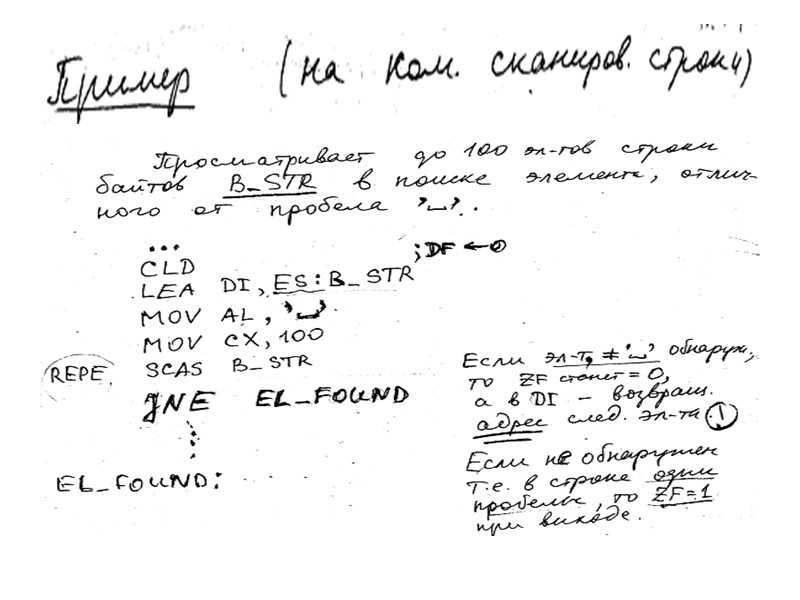 Пример (на ком. сканиров. строки)
Просматривает до 100 эл-тов строки
байтов B_STR в поиске элемента, отлич-
ного от пробела '␣'.
...
CLD ;DF ← 0
LEA DI, ES:B_STR
MOV AL, '␣'
MOV CX, 100
REPE SCAS B_STR
JNE EL_FOUND
EL_FOUND:
Если эл-т, ≠ '␣' обнаруж,
то ZF станет = 0,
а в DI – возвращ.
адрес след. эл-та (!)
Если не обнаружен
т.е. в строке одни
пробелы, то ZF=1
при выходе.